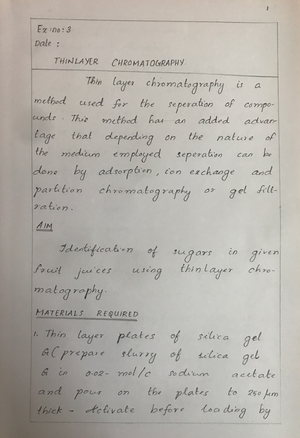 1
Ex:no:3
Date :
THINLAYER CHROMATOGRAPHY
Thin layer chromatography is a
method used for the seperation of compo-
unds. This method has an added advan-
tage that depending on the nature of
the medium employed seperation can be
done by adsorption, ion exchange and
partition chromatography or gel filt-
ration.
AIM
Identification of sugars in given
fruit juices using thinlayer chro-
matography.
MATERIALS REQUIRED
1. Thin layer plates of silica gel
G (prepare slurry of silica gel
G in 0.02- mol/c sodium acetate
and pour on the plates to 250 µm
thick - Activate before loading by